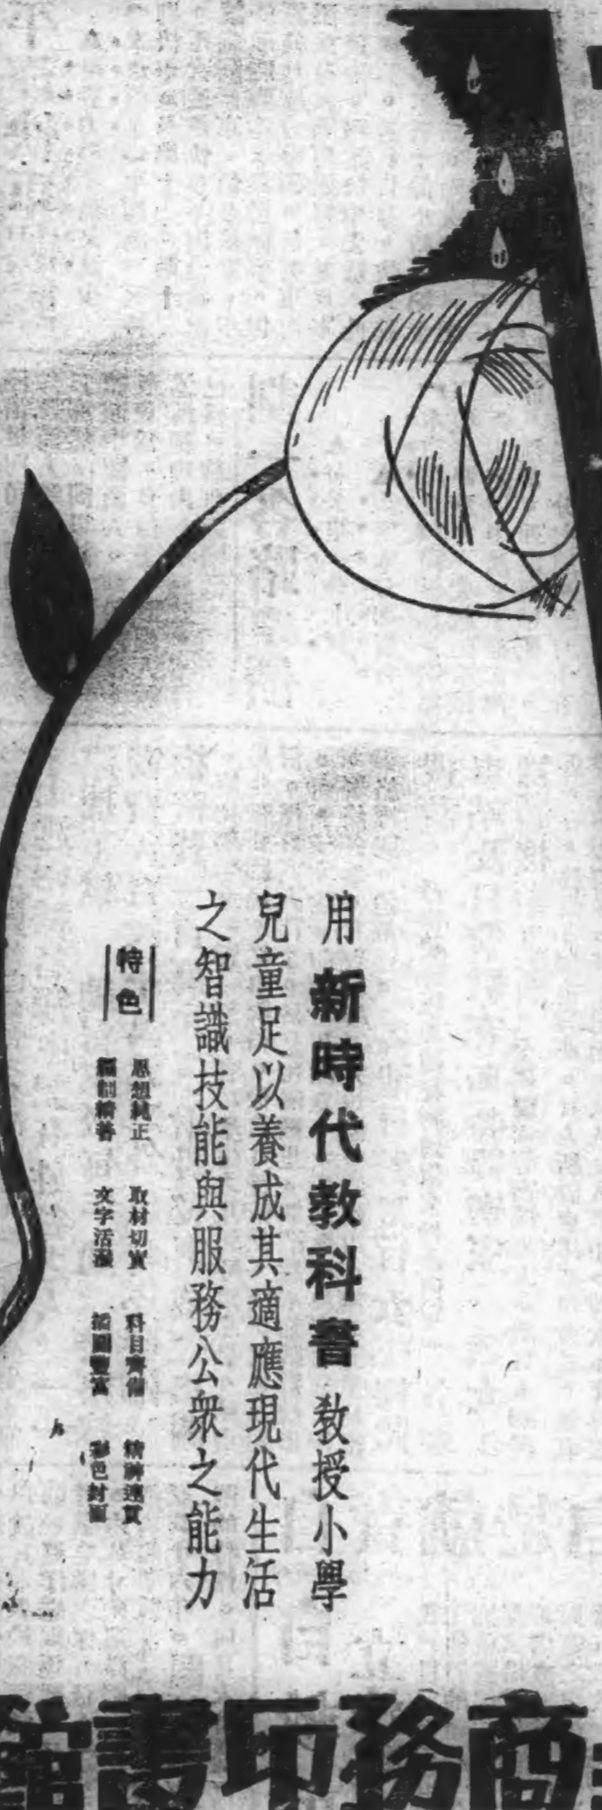 用新時代教科書教授小學
兒童足以養成其適應現代生活
之智識技能與服務公衆之能力
特色
思想純正 取材切實 科目齊備 精神連貫
編制精善 文字活潑 插圖豐富 彩色封面
商務印書館